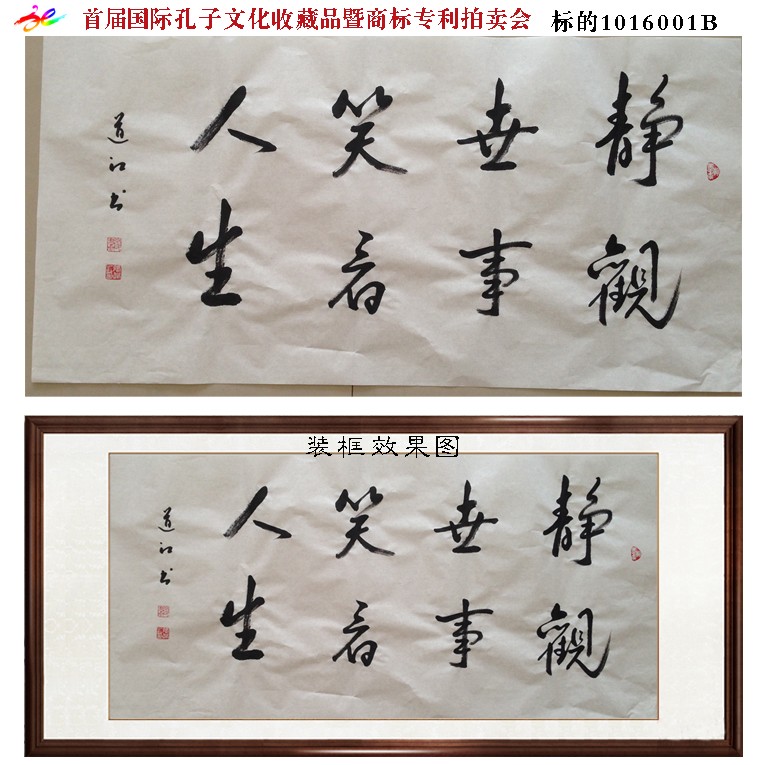 首届国际孔子文化收藏品暨商标专利拍卖会 标的1016001B
静觀
世事
笑看
人生
道江书
装框效果图
静觀
世事
笑看
人生
道江书